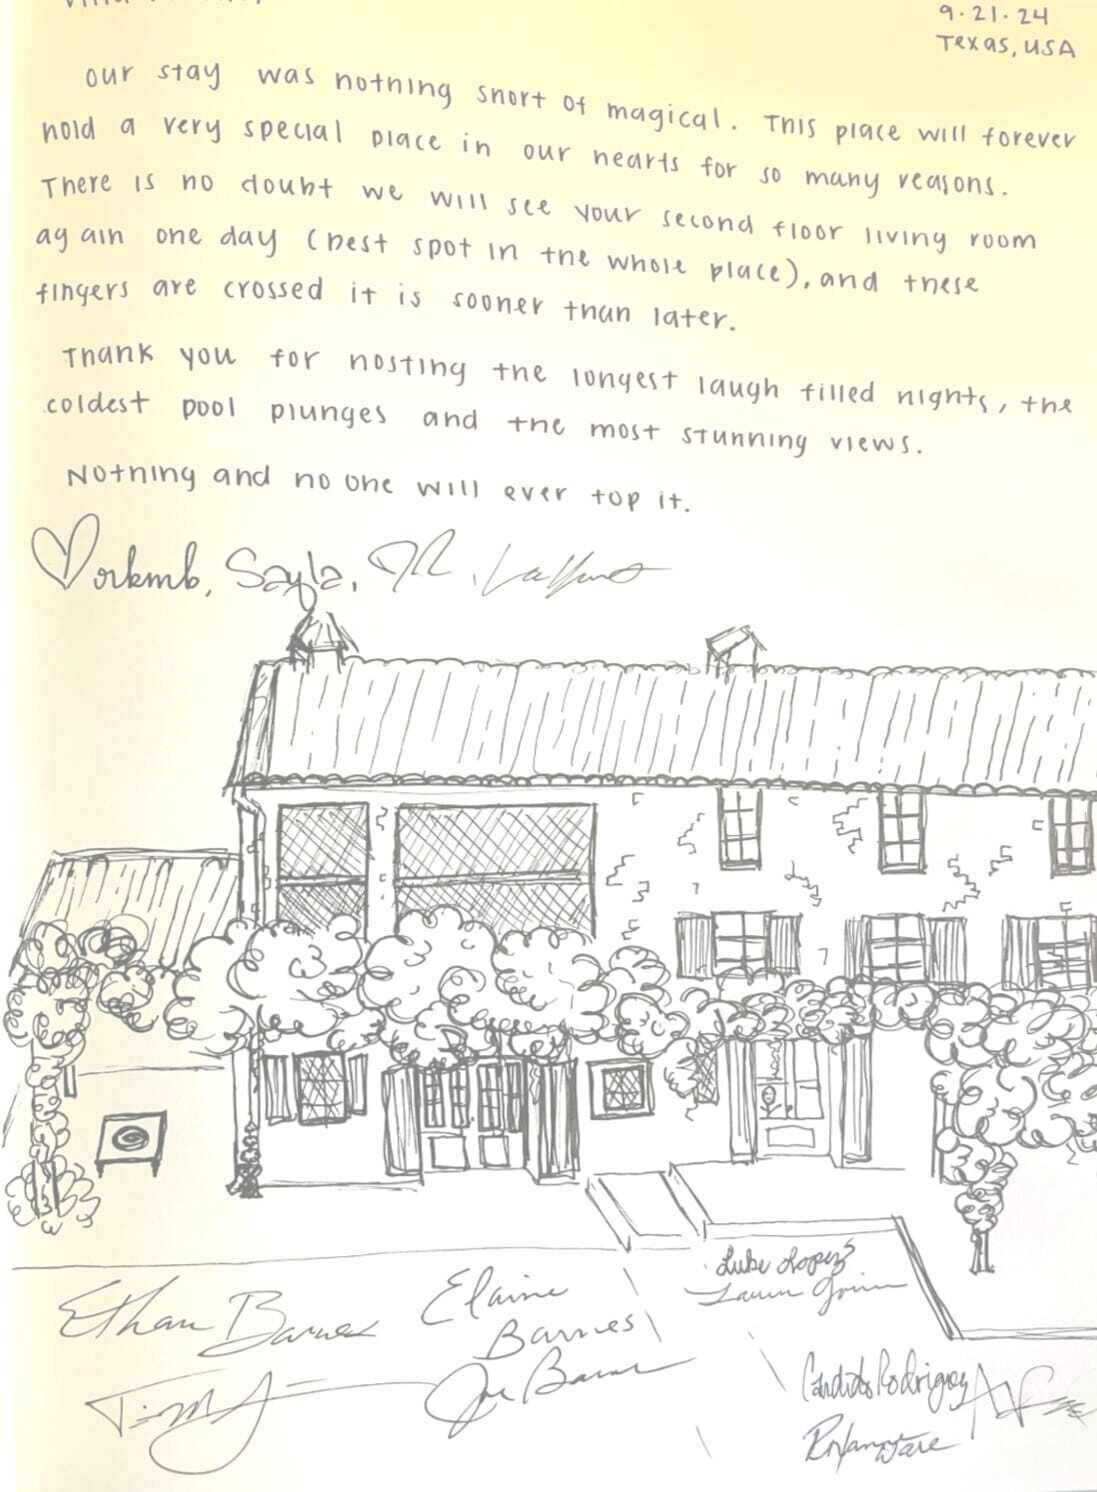 9.21.24
Texas, USA
our stay was nothing short of magical. This place will forever
hold a very special place in our hearts for so many reasons.
There is no doubt we will see your second floor living room
again one day (best spot in the whole place), and these
fingers are crossed it is sooner than later.
Thank you for hosting the longest laugh filled nights, the
coldest pool plunges and the most stunning views.
Nothing and no one will ever top it.
Sayla,
Luke Lopez
Ethan Barnes
Elaine
Barnes
Joe
Candido Rodriguez
Ware